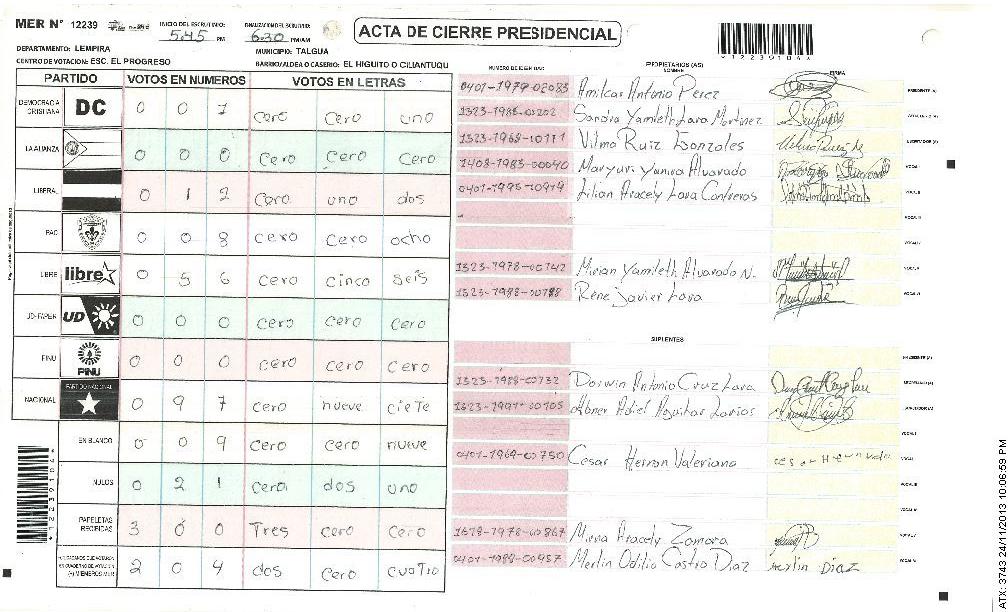 MER N° 12239
INICIO DEL ESCRUTINIO: 5:45 PM
FINALIZACION DEL ESCRUTINIO: 6:30 PM/AM
ACTA DE CIERRE PRESIDENCIAL
12239104
DEPARTAMENTO: LEMPIRA
MUNICIPIO: TALGUA
CENTRO DE VOTACION: ESC. EL PROGRESO
BARRIO/ALDEA O CASERIO: EL HIGUITO O CILIANTUQU
PARTIDO VOTOS EN NUMEROS VOTOS EN LETRAS
DEMOCRACIA CRISTIANA DC 0 0 1 cero cero uno
LA ALIANZA 0 0 0 cero cero cero
LIBERAL 0 1 2 cero uno dos
PAC 0 0 8 cero cero ocho
LIBRE libre 0 5 6 cero cinco seis
UD-FAPER UD 0 0 0 cero cero cero
PINU PINU 0 0 0 cero cero cero
NACIONAL PARTIDO NACIONAL 0 9 7 cero nueve ciete
EN BLANCO 0 0 9 cero cero nueve
NULOS 0 2 1 cero dos uno
PAPELETAS RECIBIDAS 3 0 0 Tres cero cero
(+) MIEMBROS MER 2 0 4 dos cero cuatro
NUMERO DE IDENTIDAD PROPIETARIOS (AS) NOMBRE FIRMA
0401-1979-02083 Amilcar Antonio Perez PRESIDENTE (A)
1323-1986-00202 Sandra Yamileth Lara Martinez
1323-1968-00111 Vilma Ruiz Gonzales
1408-1983-00040 Maryuri Yamira Alvarado VOCAL I
0401-1995-10919 Lilian Aracely Lara Contreras VOCAL II
VOCAL III
VOCAL IV
1323-1978-00142 Mirian Yamileth Alvarado N. VOCAL V
1323-1988-00188 Rene Javier Lara VOCAL VI
SUPLENTES
PRESIDENTE (A)
1323-1988-00132 Dorwin Antonio Cruz Lara
1323-1991-00105 Abner Adiel Aguilar Larios
VOCAL I
0401-1969-00750 Cesar Hernan Valeriano
VOCAL III
VOCAL IV
1618-1978-00867 Mirna Aracely Zamora
0401-1988-00457 Merlin Odilio Castro Diaz Merlin Diaz
12239104
ATX: 3743 24/11/2013 10:06:59 PM